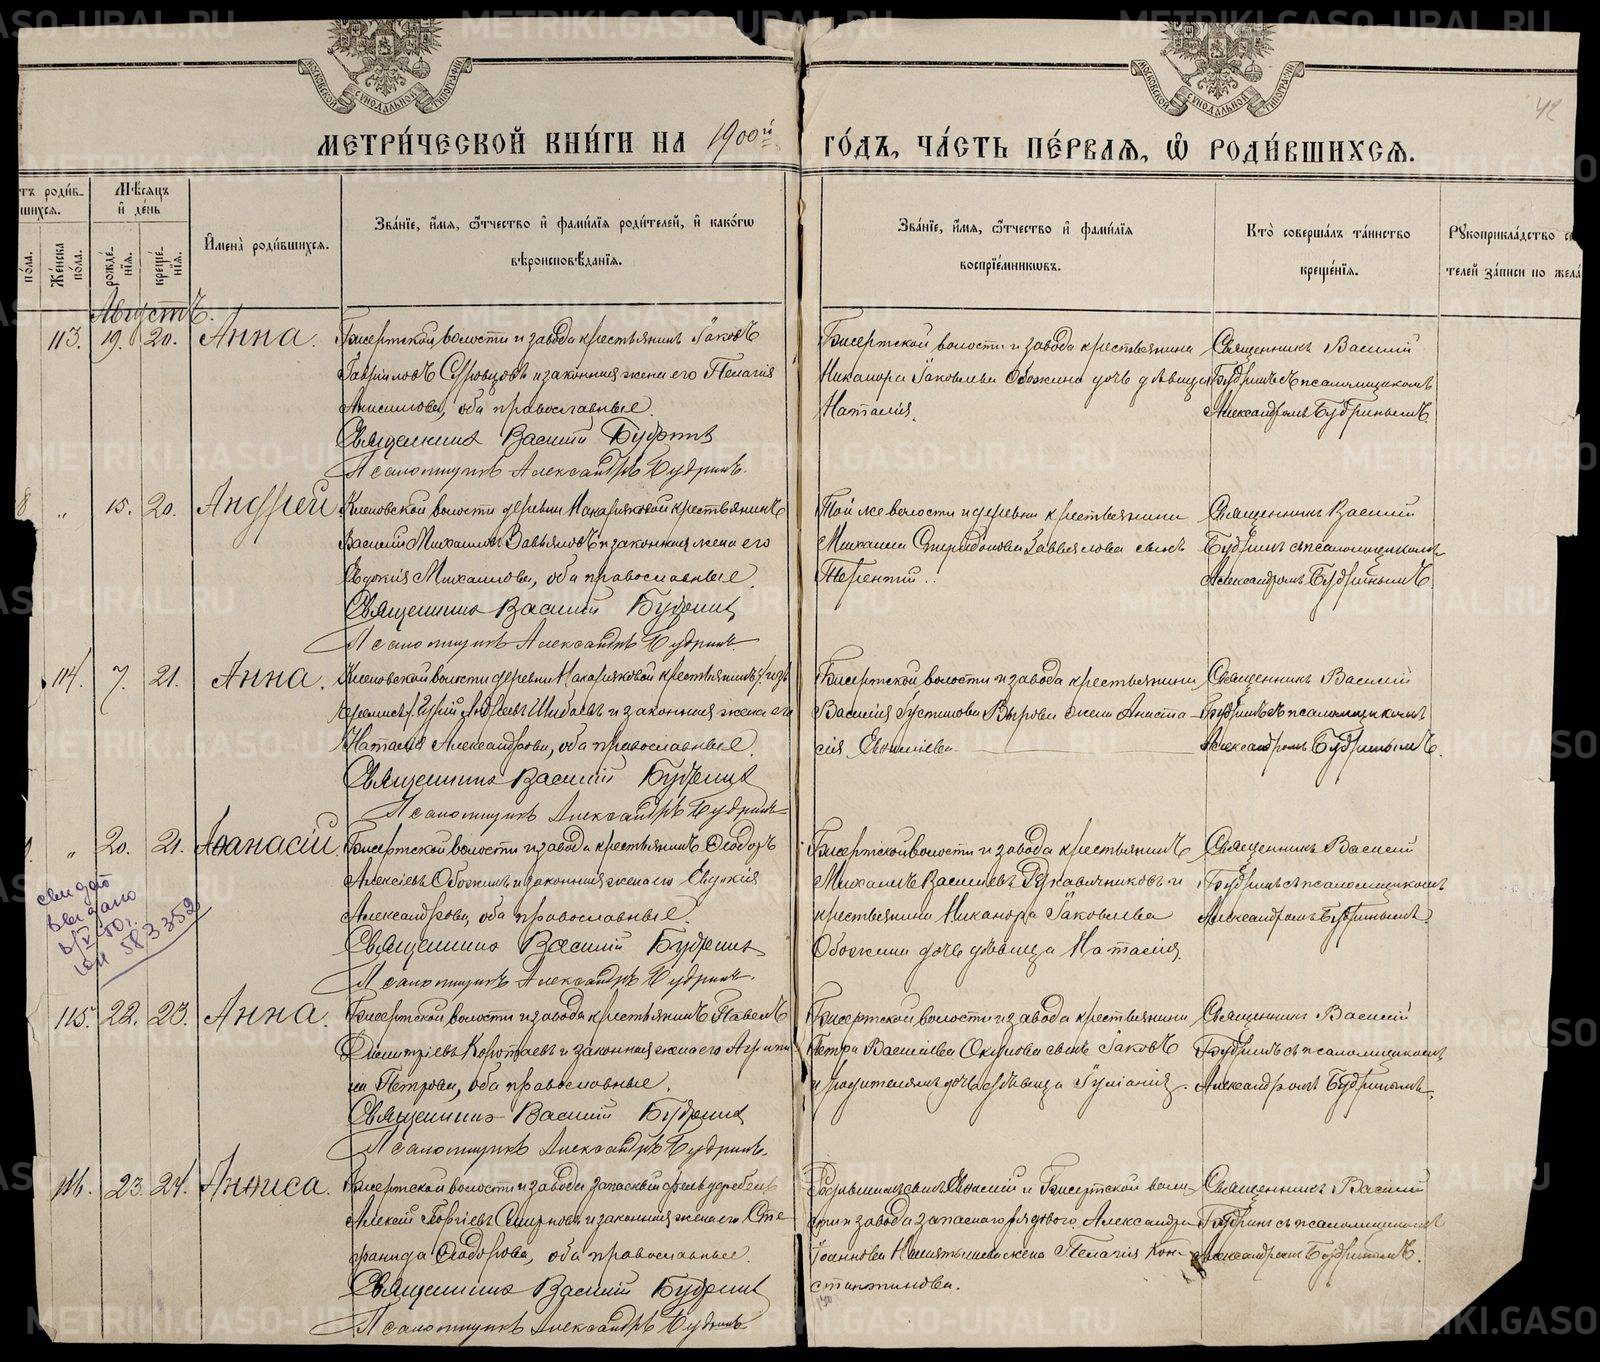 МЕТРИ́ЧЕСКОЙ КНИ́ГИ НА 1900й
ГО́ДЪ, ЧА́СТЬ ПЕ́РВАѦ, Ѽ РОДИ́ВШИХСѦ.
Мѣ́сѧцъ и҆ де́нь
Же́нска по́ла.
рожде́нїѧ.
креще́нїѧ.
И҆мена̀ роди́вшихсѧ.
Зва́нїе, и҆́мѧ, ѻ҆́тчество и҆ фами́лїѧ роди́телей, и҆ како́гѡ
вѣроисповѣ́данїѧ.
Зва́нїе, и҆́мѧ, ѻ҆́тчество и҆ фами́лїѧ
воспрїе́мникѡвъ.
Кто̀ соверша́лъ та́инство
креще́нїѧ.
Рꙋкоприкла́дство
телей за́писи по жела
Августъ.
113. 19. 20. Анна.
Бисертской волости и завода крестьянинъ Іаковъ
Гавриловъ Суровцовъ и законная жена его Пелагія
Анисимова, оба православные.
Священникъ Василій Будринъ
Псаломщикъ Александръ Будринъ.
Бисертской волости и завода крестьянина
Никанора Іаковлева Обожина дочь дѣвица
Наталія.
Священникъ Василій
Будринъ съ псаломщикомъ
Александромъ Будринымъ.
8 „ 15. 20. Андрей
Кленовской волости деревни Макаряковой крестьянинъ
Василій Михаиловъ Завьяловъ и законная жена его
Евдокія Михаилова, оба православные.
Священникъ Василій Будринъ
Псаломщикъ Александръ Будринъ.
Той же волости и деревни крестьянина
Михаила Спиридонова Завьялова сынъ
Терентій.
Священникъ Василій
Будринъ съ псаломщикомъ
Александромъ Будринымъ.
114. 7. 21. Анна.
Кленовской волости деревни Макаряковой крестьянинъ (изъ
черемисъ) Андреевъ Шибаевъ и законная жена его
Наталія Александрова, оба православные.
Священникъ Василій Будринъ
Псаломщикъ Александръ Будринъ
Бисертской волости и завода крестьянина
Василія Іустинова Вырова жена Анаста-
сія
Священникъ Василій
Будринъ съ псаломщикомъ
Александромъ Будринымъ.
„ 20. 21. Аѳанасій
Бисертской волости и завода крестьянинъ Ѳеодоръ
Алексіевъ Обожинъ и законная жена его Евдокія
Александрова, оба православные.
Священникъ Василій Будринъ
Псаломщикъ Александръ Будринъ.
Бисертской волости и завода крестьянинъ
Михаилъ Васильевъ Рукавичниковъ и
крестьянина Никанора Іаковлева
Обожина дочь дѣвица Наталія.
Священникъ Василій
Будринъ съ псаломщикомъ
Александромъ Будринымъ.
выдано
115. 22. 23. Анна.
Бисертской волости и завода крестьянинъ Павелъ
Димитріевъ Коротаевъ и законная жена его Агрипи-
на Петрова, оба православные.
Священникъ Василій Будринъ
Псаломщикъ Александръ Будринъ.
Бисертской волости и завода крестьянина
Петра Васильева Окулова сынъ Іаковъ
и родителямъ дочь дѣвица Іуліанія.
Священникъ Василій
Будринъ съ псаломщикомъ
Александромъ Будринымъ.
116. 23. 24. Анниса.
Бисертской волости и завода запасный
Алексій Георгіевъ Смирновъ и законная жена его Сте-
фанида Ѳеодорова, оба православные.
Священникъ Василій Будринъ
Псаломщикъ Александръ Будринъ
и Бисертской воло-
сти и завода запаснаго рядового Александра
Іоаннова жена Пелагія Кон-
стантинова.
Священникъ Василій
Будринъ съ псаломщикомъ
Александромъ Будринымъ.
METRIKI.GASO-URAL.RU